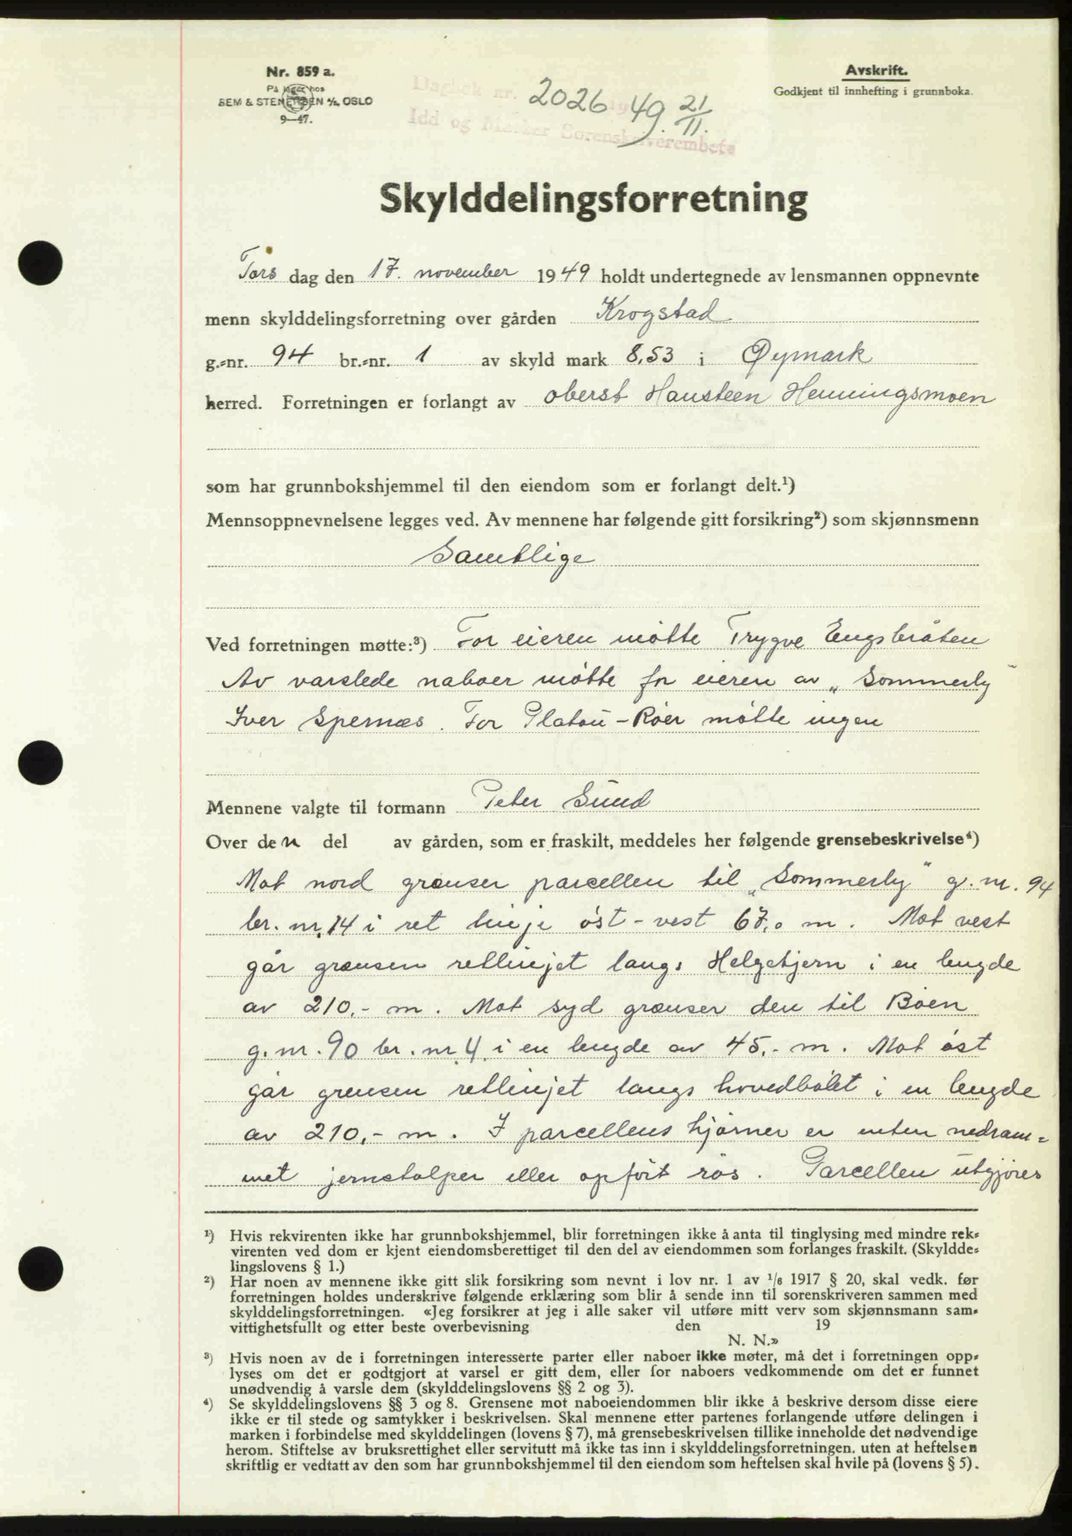 Nr. 859 a.
På lager hos
SEM & STENERSEN A/S, OSLO
9—47.
Avskrift.
Godkjent til innhefting i grunnboka.
Dagbok nr. 2026 1949. 21/11.
Idd og Marker Sorenskriverembete
Skylddelingsforretning
Tors dag den 17. november 1949 holdt undertegnede av lensmannen oppnevnte
menn skylddelingsforretning over gården Krogstad
g.-nr. 94 br.-nr. 1 av skyld mark 8,53 i Øymark
herred. Forretningen er forlangt av oberst Hansteen Henningsmoen
som har grunnbokshjemmel til den eiendom som er forlangt delt.¹)
Mennsoppnevnelsene legges ved. Av mennene har følgende gitt forsikring²) som skjønnsmenn
Samtlige
Ved forretningen møtte:³) For eieren møtte Trygve Engsbråten
Av varslede naboer møtte for eieren av „Sommerly"
Iver Spernæs. For Platou-Røer møtte ingen
Mennene valgte til formann Peter Sund
Over den del av gården, som er fraskilt, meddeles her følgende grensebeskrivelse⁴)
Mot nord grænser parcellen til „Sommerly" g. nr. 94
br. nr. 14 i ret linje øst-vest 67,0 m. Mot vest
går grænsen retlinjet langs Helgetjern i en lengde
av 210,- m. Mot syd grænser den til Bøen
g. nr. 90 br. nr. 4, i en lengde av 45,- m. Mot øst
går grensen retlinjet langs hovedbølet i en lengde
av 210,- m. I parcellens hjørner er enten nedram=
met jernstolper eller opført røs. Parcellen utgjøres
¹) Hvis rekvirenten ikke har grunnbokshjemmel, blir forretningen ikke å anta til tinglysing med mindre rek-
virenten ved dom er kjent eiendomsberettiget til den del av eiendommen som forlanges fraskilt. (Skyldde-
lingslovens § 1.)
²) Har noen av mennene ikke gitt slik forsikring som nevnt i lov nr. 1 av 1/6 1917 § 20, skal vedk. før
forretningen holdes underskrive følgende erklæring som blir å sende inn til sorenskriveren sammen med
skylddelingsforretningen. «Jeg forsikrer at jeg i alle saker vil utføre mitt verv som skjønnsmann sam-
vittighetsfullt og etter beste overbevisning den 19
N. N.»
³) Hvis noen av de i forretningen interesserte parter eller naboer ikke møter, må det i forretningen opp-
lyses om det er godtgjort at varsel er gitt dem, eller for naboers vedkommende om det er funnet
unødvendig å varsle dem (skylddelingslovens §§ 2 og 3).
⁴) Se skylddelingslovens §§ 3 og 8. Grensene mot naboeiendommen blir ikke å beskrive dersom disse eiere
ikke er til stede og samtykker i beskrivelsen. Skal mennene etter partenes forlangende utføre delingen i
marken i forbindelse med skylddelingen (lovens § 7), må grensebeskrivelsen tillike inneholde det nødvendige
herom. Stiftelse av bruksrettighet eller servitutt må ikke tas inn i skylddelingsforretningen, uten at heftelsen
skriftlig er vedtatt av den som har grunnbokshjemmel til den eiendom som heftelsen skal hvile på (lovens § 5).